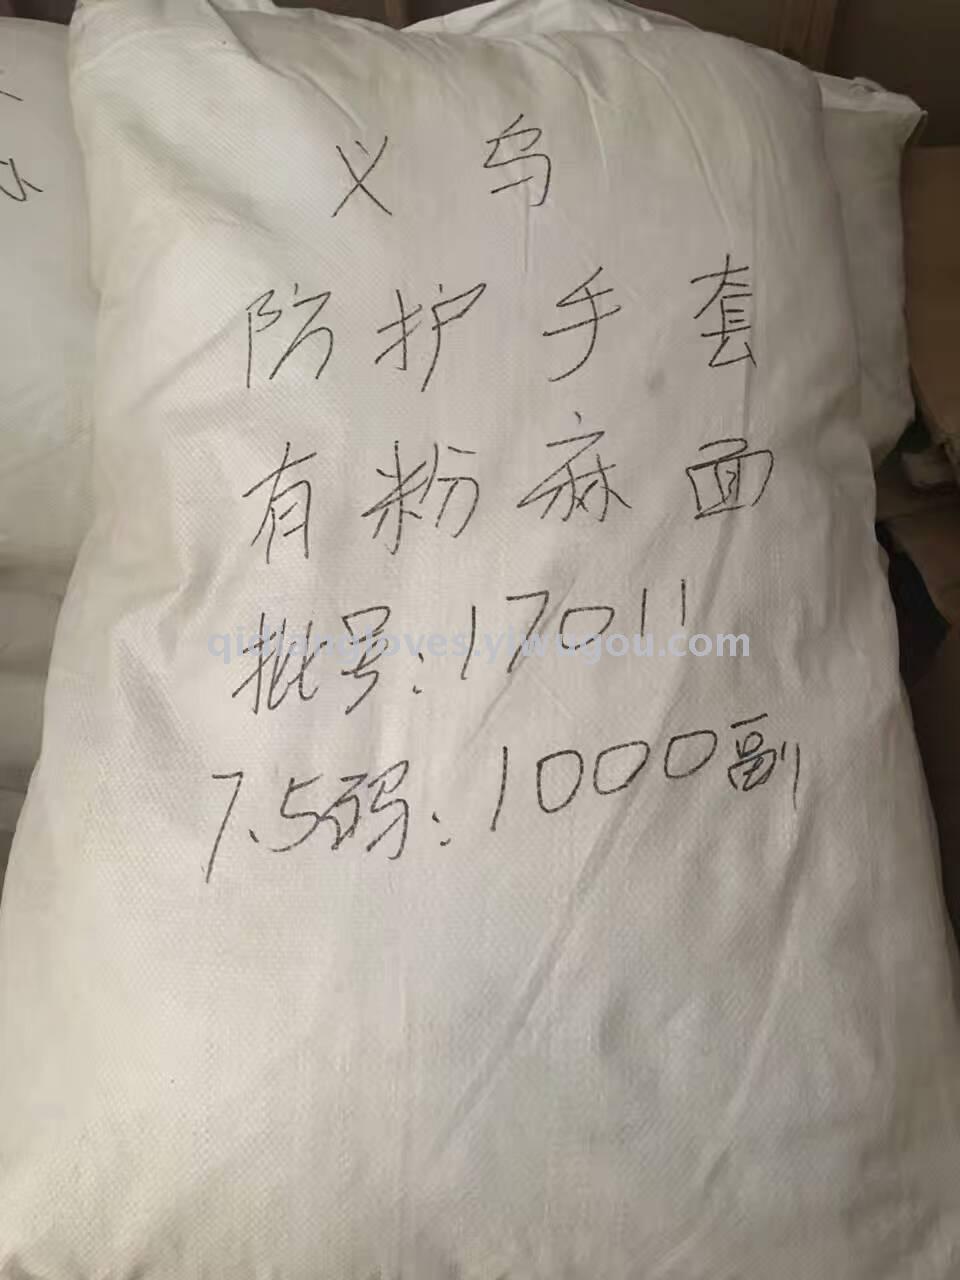 义乌
防护手套
有粉麻面
批号:17011
qidiangloves.yiwugou.com
7.5码:1000副